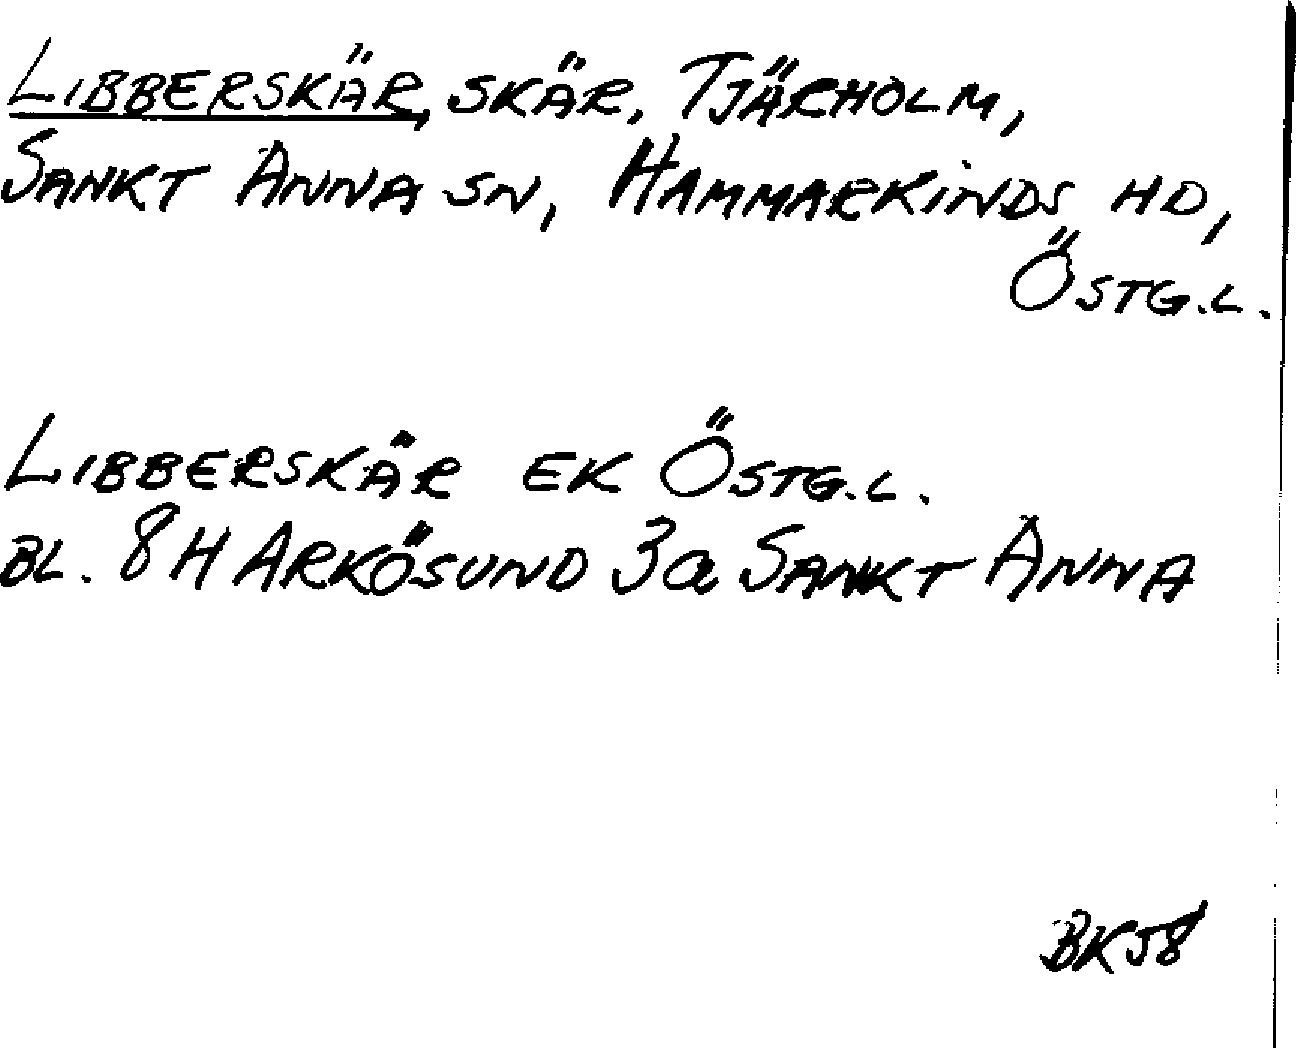 LIBBERSKÄR, SKÄR, TJÄRHOLM,
SANKT ANNA SN, HAMMARKINDS HD,
ÖSTG.L.
LIBBERSKÄR EK ÖSTG.L.
BL. 8H ARKÖSUND 3a SANKT ANNA
BK58